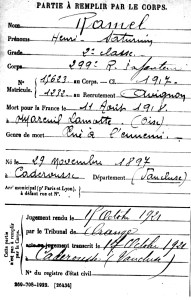 PARTIE À REMPLIR PAR LE CORPS.
Nom RAMEL
Prénoms Henri Saturnin
Grade 2e classe
Corps 299e R. I
N° 15623 au Corps. — Cl. 1917
Matricule. 1232 au Recrutement Avignon
Mort pour la France le 11 Août 1918
à Mareuil Lamotte (Oise)
Genre de mort Tué à l'ennemi
Né le 29 Novembre 1897
à Caderousse Département (Vaucluse)
Arr' municipal (pr Paris et Lyon),
à défaut rue et N°.
Cette partie n'est pas à remplir par le Corps.
Jugement rendu le Octob 1921
par le Tribunal de Orange
jugement transcrit le Octob 1921
à Caderousse (Vaucluse)
N° du registre d'état civil